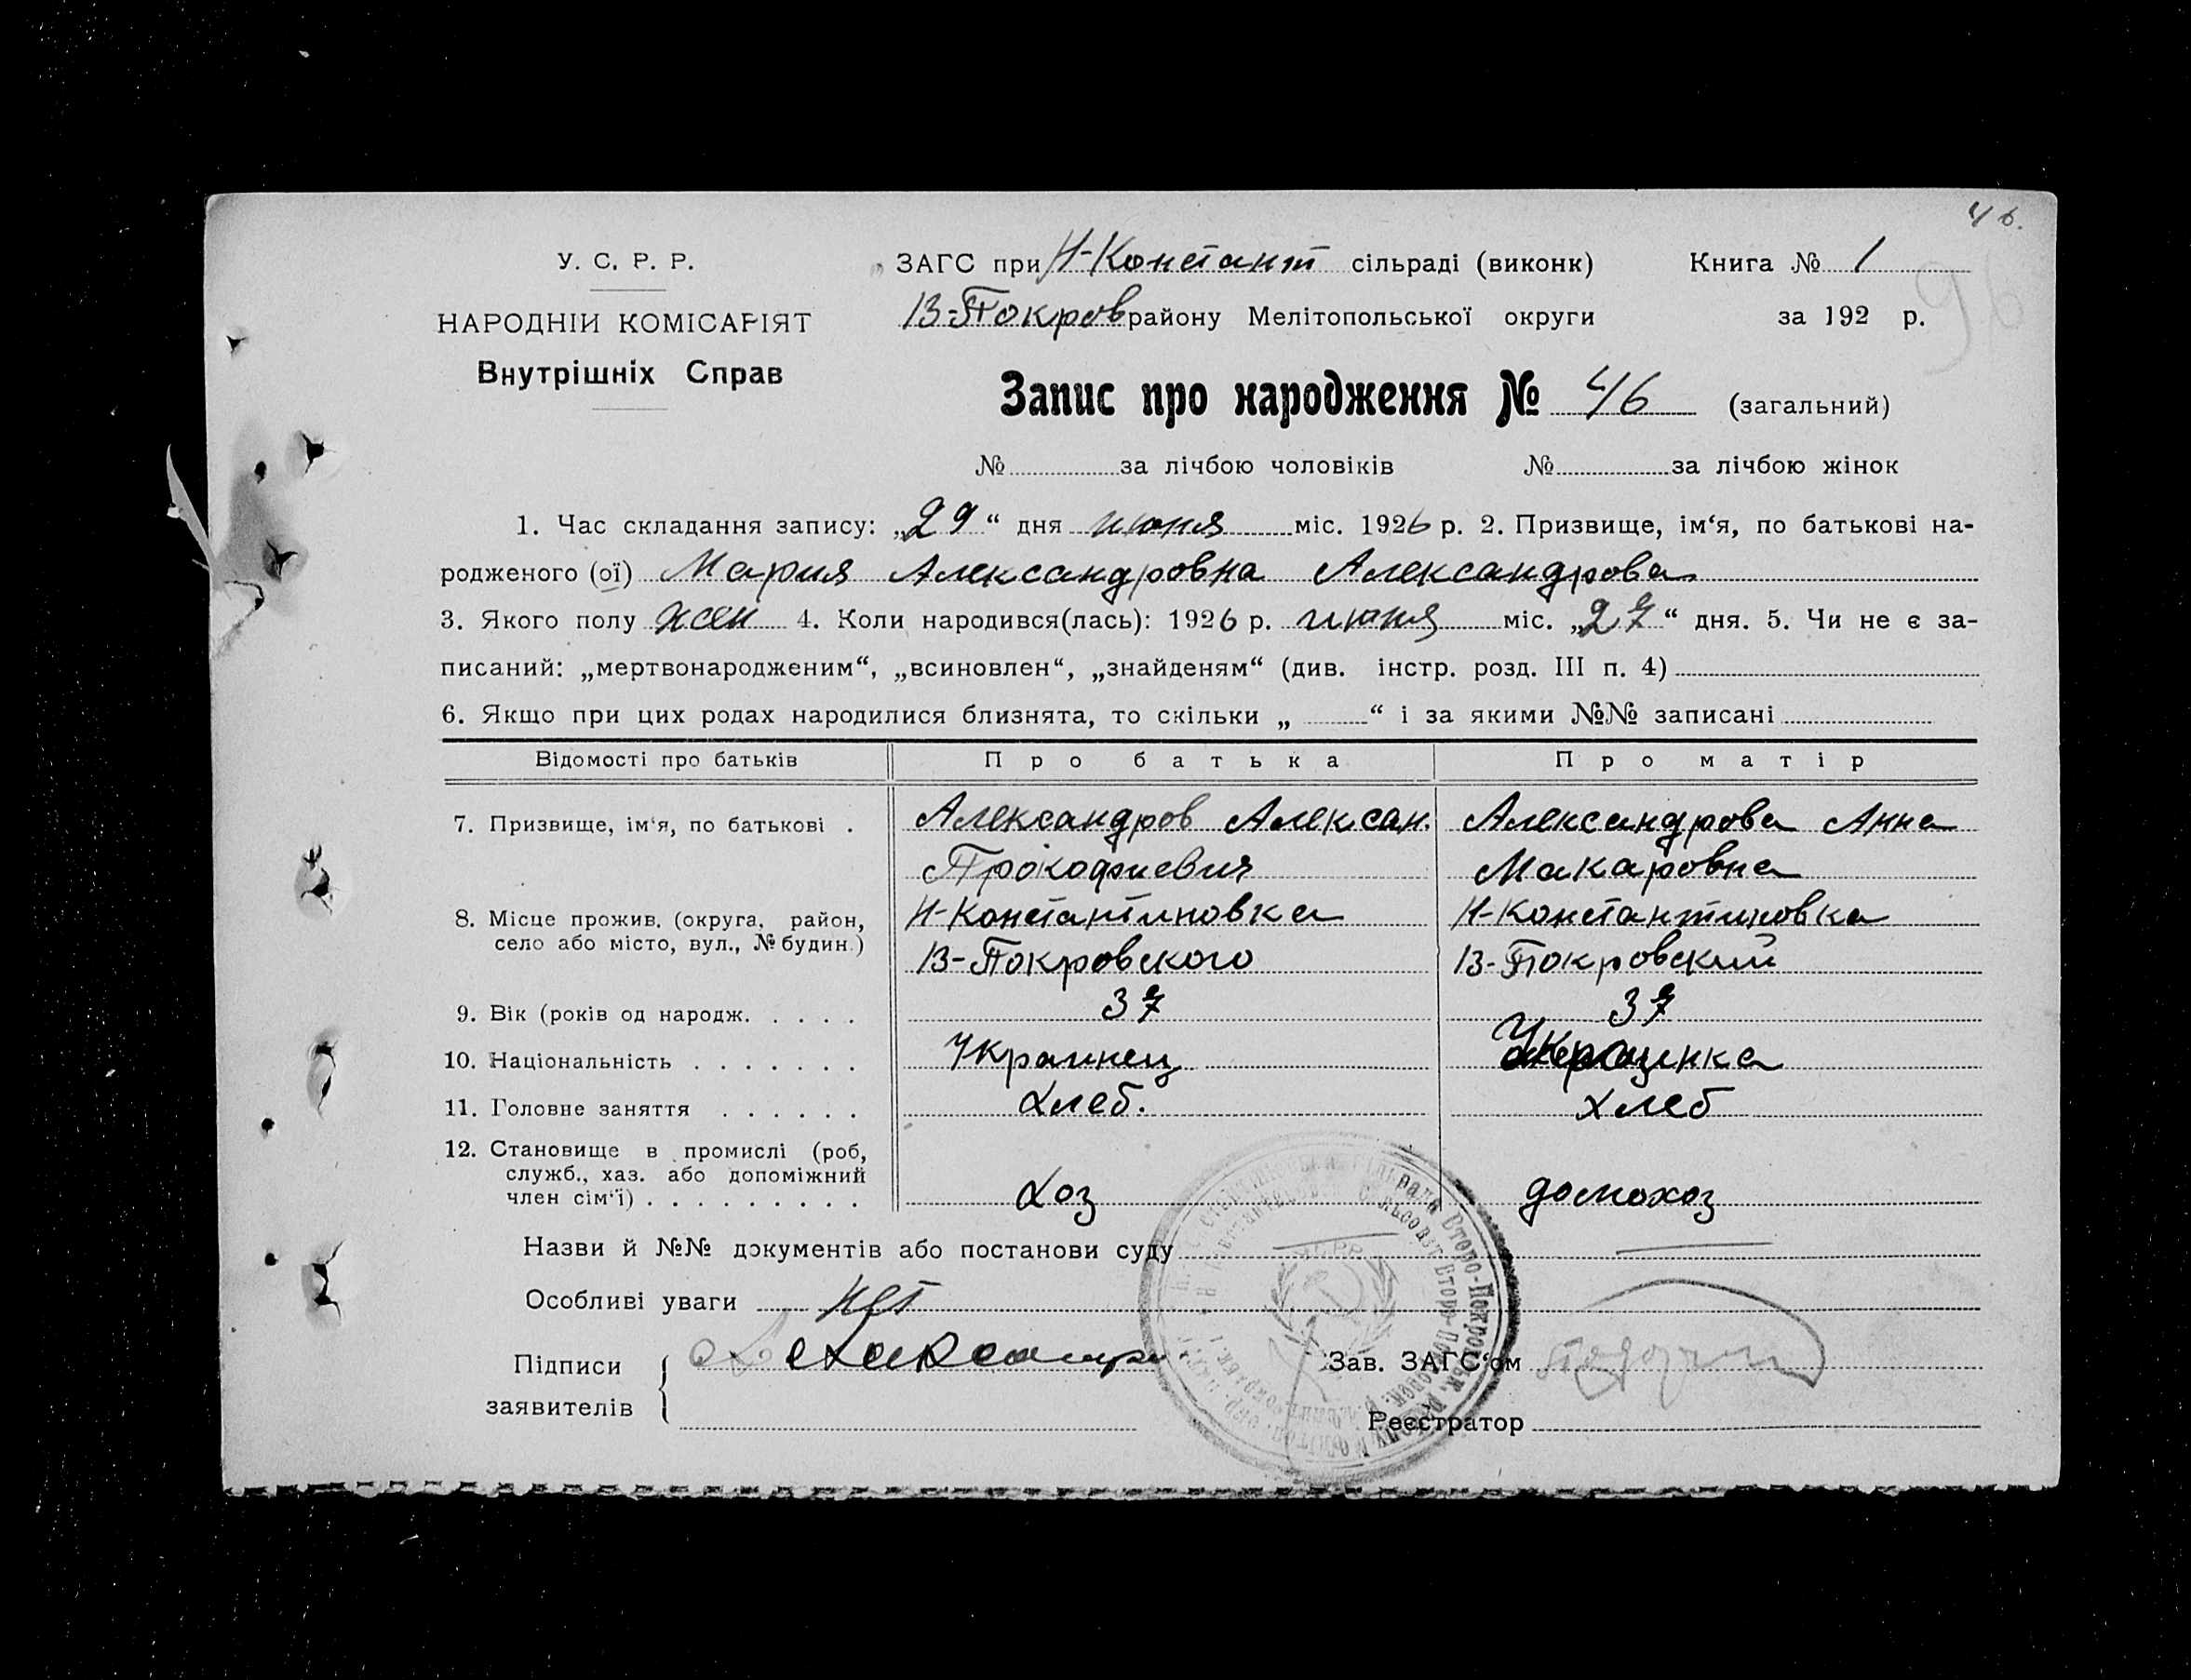 46.
У. С. Р. Р.
ЗАГС при Н-Констант сільраді (виконк) Книга № 1
96
НАРОДНІЙ КОМІСАРІЯТ
В-Покров району Мелітопольської округи за 192 р.
Внутрішніх Справ
Запис про народження № 46 (загальний)
№ за лічбою чоловіків № за лічбою жінок
1. Час складання запису: „29“ дня июня міс. 1926 р. 2. Призвище, ім‘я, по батькові на-
родженого (ої) Мария Александровна Александрова
3. Якого полу жен 4. Коли народився(лась): 1926 р. июня міс. „27“ дня. 5. Чи не є за-
писаний: „мертвонародженим“, „всиновлен“, „знайденям“ (див. інстр. розд. III п. 4)
6. Якщо при цих родах народилися близнята, то скільки „ “ і за якими №№ записані
Відомості про батьків Про батька Про матір
7. Призвище, ім‘я, по батькові . Александров Алексан. Александрова Анна
Прокофиевич Макаровна
8. Місце прожив. (округа, район, Н-Константиновка Н-Константиновка
село або місто, вул., № будин.) В-Покровского В-Покровский
9. Вік (років од народж. . . . . 37 37
10. Національність . . . . . . . Украинец Украинка
11. Головне заняття . . . . . . Хлеб. хлеб
12. Становище в промислі (роб,
служб., хаз. або допоміжний
член сім‘ї) . . . . . . . . . Хоз домохоз
Назви й №№ документів або постанови суду
Особливі уваги нет
Підписи
заявителів
Зав. ЗАГС‘ом
Реєстратор